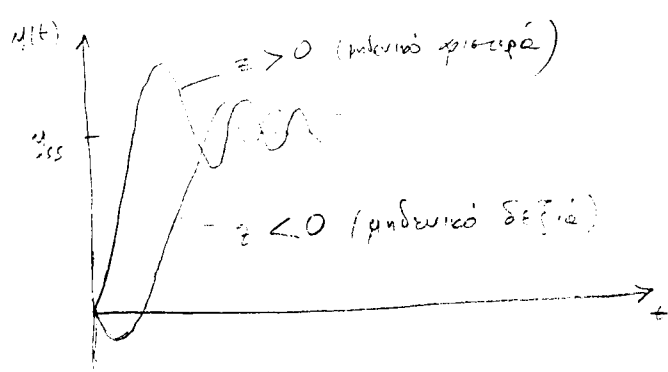 y(t)
z > 0 (μηδενικό αριστερά)
y_ss
z < 0 (μηδενικό δεξιά)
t